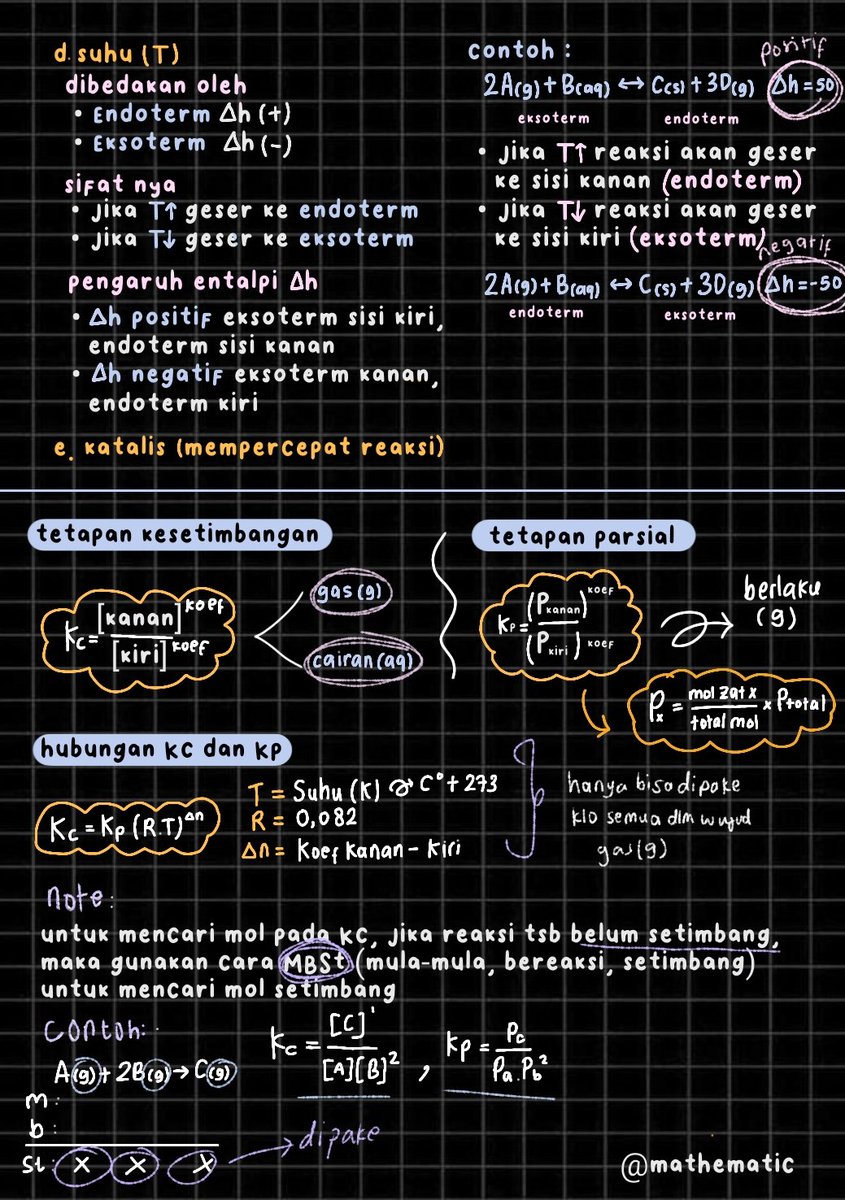 d. suhu (T)
dibedakan oleh
• Endoterm Δh (+)
• Eksoterm Δh (-)
sifat nya
• jika T↑ geser ke endoterm
• jika T↓ geser ke eksoterm
pengaruh entalpi Δh
• Δh positif eksoterm sisi kiri,
endoterm sisi kanan
• Δh negatif eksoterm kanan,
endoterm kiri
e. katalis (mempercepat reaksi)
contoh :
positif
2A(g) + B(aq) ↔ C(s) + 3D(g) Δh = 50
eksoterm endoterm
• jika T↑ reaksi akan geser
ke sisi kanan (endoterm)
• jika T↓ reaksi akan geser
ke sisi kiri (eksoterm)
negatif
2A(g) + B(aq) ↔ C(s) + 3D(g) Δh = -50
endoterm eksoterm
tetapan kesetimbangan
Kc = [kanan]^koef / [kiri]^koef
gas (g)
cairan (aq)
tetapan parsial
Kp = (Pkanan)^koef / (Pkiri)^koef
berlaku
(g)
Px = mol zat x / total mol × Ptotal
hubungan kc dan kp
Kc = Kp (R.T)^Δn
T = Suhu (K) C° + 273
R = 0,082
Δn = Koef kanan - kiri
hanya bisa dipake
klo semua dlm wujud
gas (g)
note:
untuk mencari mol pada kc, jika reaksi tsb belum setimbang,
maka gunakan cara MBSt (mula-mula, bereaksi, setimbang)
untuk mencari mol setimbang
contoh:
A(g) + 2B(g) → C(g)
m :
b :
St : x x x → dipake
Kc = [C]^1 / [A][B]^2 , Kp = Pc / Pa . Pb^2
@mathematic